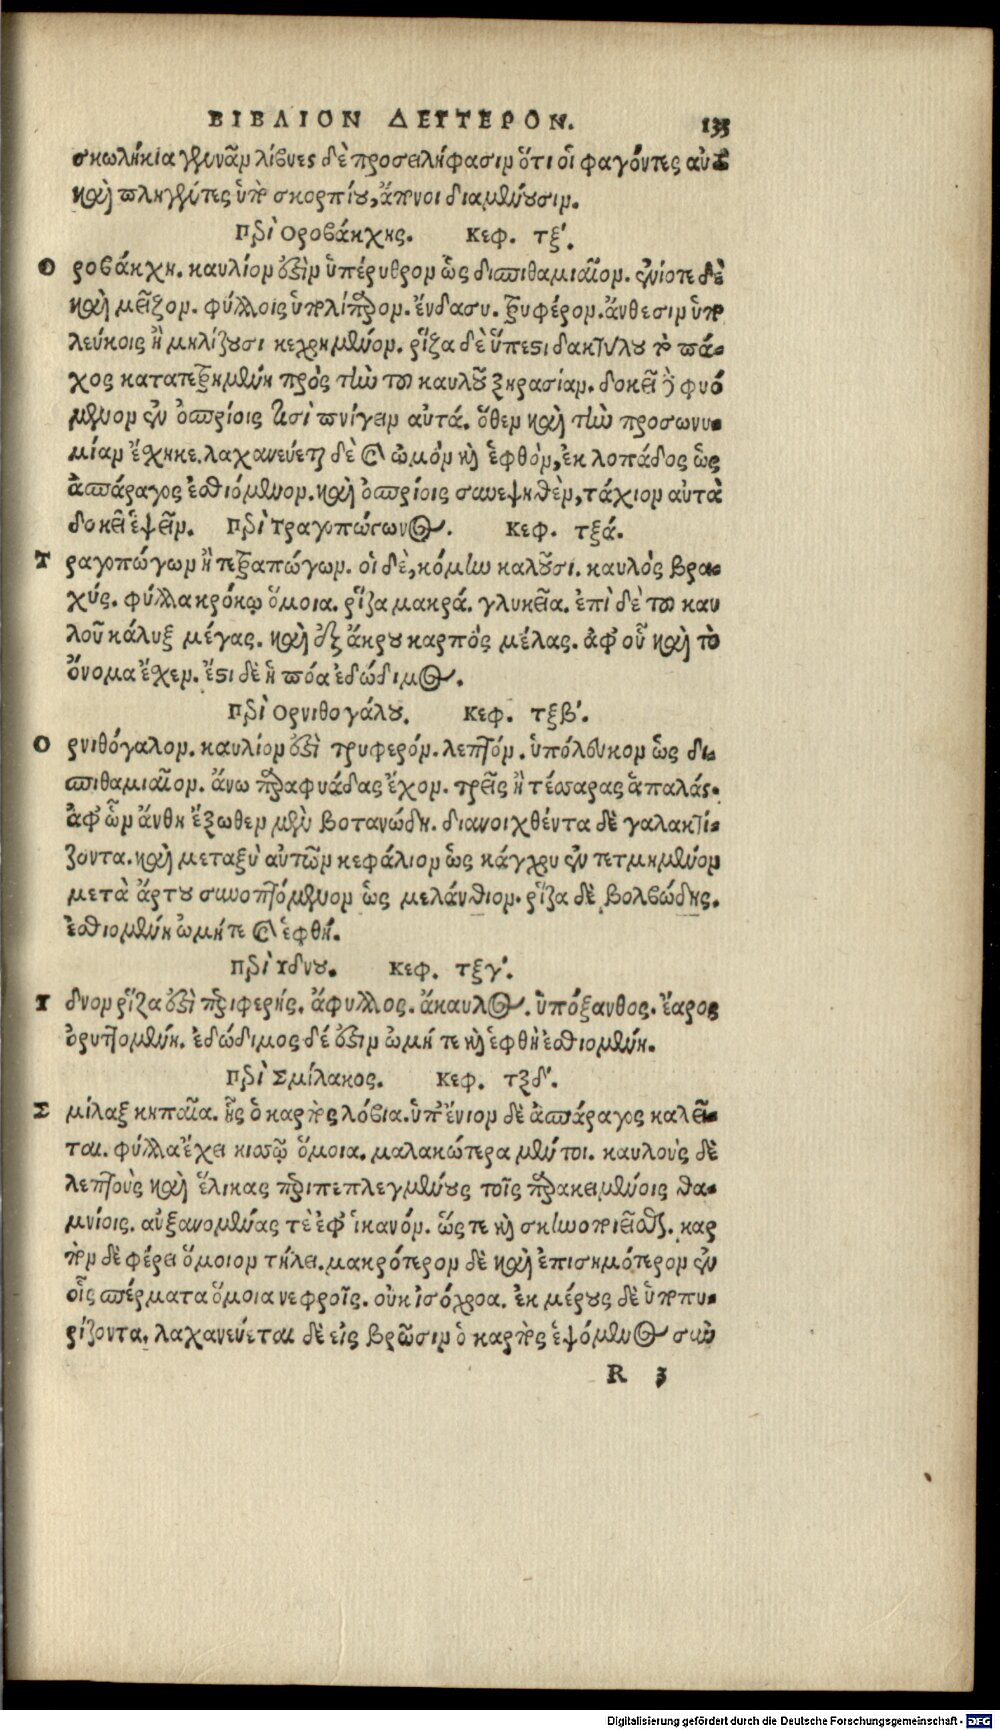 ΒΙΒΛΙΟΝ ΔΕΥΤΕΡΟΝ. 135
σκωλήκια γεννᾶν λίβυες δὲ προσειλήφασιν ὅτι οἱ φαγόντες αὐτὸ
καὶ πληγέντες ὑπὸ σκορπίου, ἄπονοι διαμένουσιν.
Περὶ Οροβάκχης. Κεφ. τξ΄.
Οροβάκχη. καυλίον ἐστὶν ὑπέρυθρον ὡς δισπιθαμιαῖον. ἐνίοτε δὲ
καὶ μεῖζον. φύλλοις ὑπολίπαρον. ἔνδασυ. τρυφέρον. ἄνθεσιν ὑπο
λεύκοις ἢ μηλίζουσι κεχρημένον. ῥίζα δὲ ὕπεστι δακτύλου τὸ πά-
χος κατατετρημένη πρὸς τὴν τοῦ καυλοῦ ξηρασίαν. δοκεῖ δὲ φυό
μενον ἐν ὀσπρίοις τισὶ πνίγειν αὐτά. ὅθεν καὶ τὴν προσωνυ-
μίαν ἔχηκε. λαχανεύεται δὲ καὶ ὠμὸν καὶ ἑφθὸν, ἐκ λοπάδος ὡς
ἀσπάραγος ἐσθιόμενον. καὶ ὀσπρίοις συνεψηθὲν, τάχιον αὐτὰ
δοκεῖ ἑψεῖν. Περὶ Τραγοπώγωνος. Κεφ. τξά.
Τραγοπώγων ἢ τετραπώγων. οἱ δὲ, κόμην καλοῦσι. καυλὸς βρα-
χύς. φύλλα κρόκῳ ὅμοια. ῥίζα μακρά. γλυκεῖα. ἐπὶ δὲ τοῦ καυ
λοῦ κάλυξ μέγας. καὶ ἐξ ἄκρου καρπὸς μέλας. ἀφ' οὗ καὶ τὸ
ὄνομα ἔχεν. ἔστι δὲ ἡ πόα ἐδώδιμος.
Περὶ Ορνιθογάλου. Κεφ. τξβ΄.
Ορνιθόγαλον. καυλίον ἐστὶ τρυφερόν. λεπτόν. ὑπόλευκον ὡς δι-
σπιθαμιαῖον. ἄνω παραφυάδας ἔχον. τρεῖς ἢ τέσσαρας ἁπαλάς.
ἀφ' ὧν ἄνθη ἔξωθεν μὲν βοτανώδη. διανοιχθέντα δὲ γαλακτί-
ζοντα. καὶ μεταξὺ αὐτῶν κεφάλιον ὡς κάγχρυ ἐντετμημένον
μετὰ ἄρτου συνοπτόμενον ὡς μελάνθιον. ῥίζα δὲ βολβώδης.
ἐσθιομένη ὠμή τε καὶ ἑφθή.
Περὶ Υδνου. Κεφ. τξγ΄.
Υδνον ῥίζα ἐστὶ περιφερής. ἄφυλλος. ἄκαυλος. ὑπόξανθος. ἔαρος
ὀρυττομένη. ἐδώδιμος δέ ἐστιν ὠμή τε καὶ ἑφθὴ ἐσθιομένη.
Περὶ Σμίλακος. Κεφ. τξδ΄.
Σμίλαξ κηπαῖα. ἧς ὁ καρπὸς λόβια. ὑπ' ἐνίον δὲ ἀσπάραγος καλεῖ-
ται. φύλλα ἔχει κισσῷ ὅμοια. μαλακώτερα μέντοι. καυλοὺς δὲ
λεπτοὺς καὶ ἕλικας περιπεπλεγμένους τοῖς παρακειμένοις θα-
μνίοις. αὐξανομένας τὲ ἐφ' ἱκανόν. ὥς τε καὶ σκηνοποιεῖσθαι. καρ
πὸν δὲ φέρει ὅμοιον τήλει. μακρότερον δὲ καὶ ἐπισημότερον ἐν
οἷς σπέρματα ὅμοια νεφροῖς. οὐκ ἰσόχροα. ἐκ μέρους δὲ ὑποπυ-
ρίζοντα. λαχανεύεται δὲ εἰς βρῶσιν ὁ καρπὸς ἑψόμενος σὺν
R 3
Digitalisierung gefördert durch die Deutsche Forschungsgemeinschaft - DFG